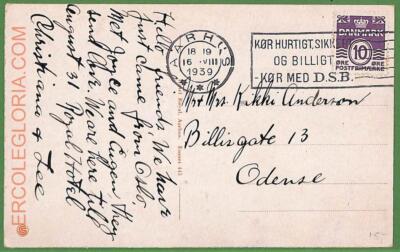 Hello friends We have
just came from Oslo.
Met Joyce and they
send love. We are here till
August 31 Royal Hotel
Christiana & Lee
AARHUS
18 19
16 VIII
1939
KØR HURTIGT, SIKK
OG BILLIGT
-KØR MED D.S.B.
DANMARK
10
ØRE ØRE
POSTFRIMÆRKE
Mr + Mrs Kikki Anderson
Billisgate 13
Odense
ERCOLEGLORIA.COM